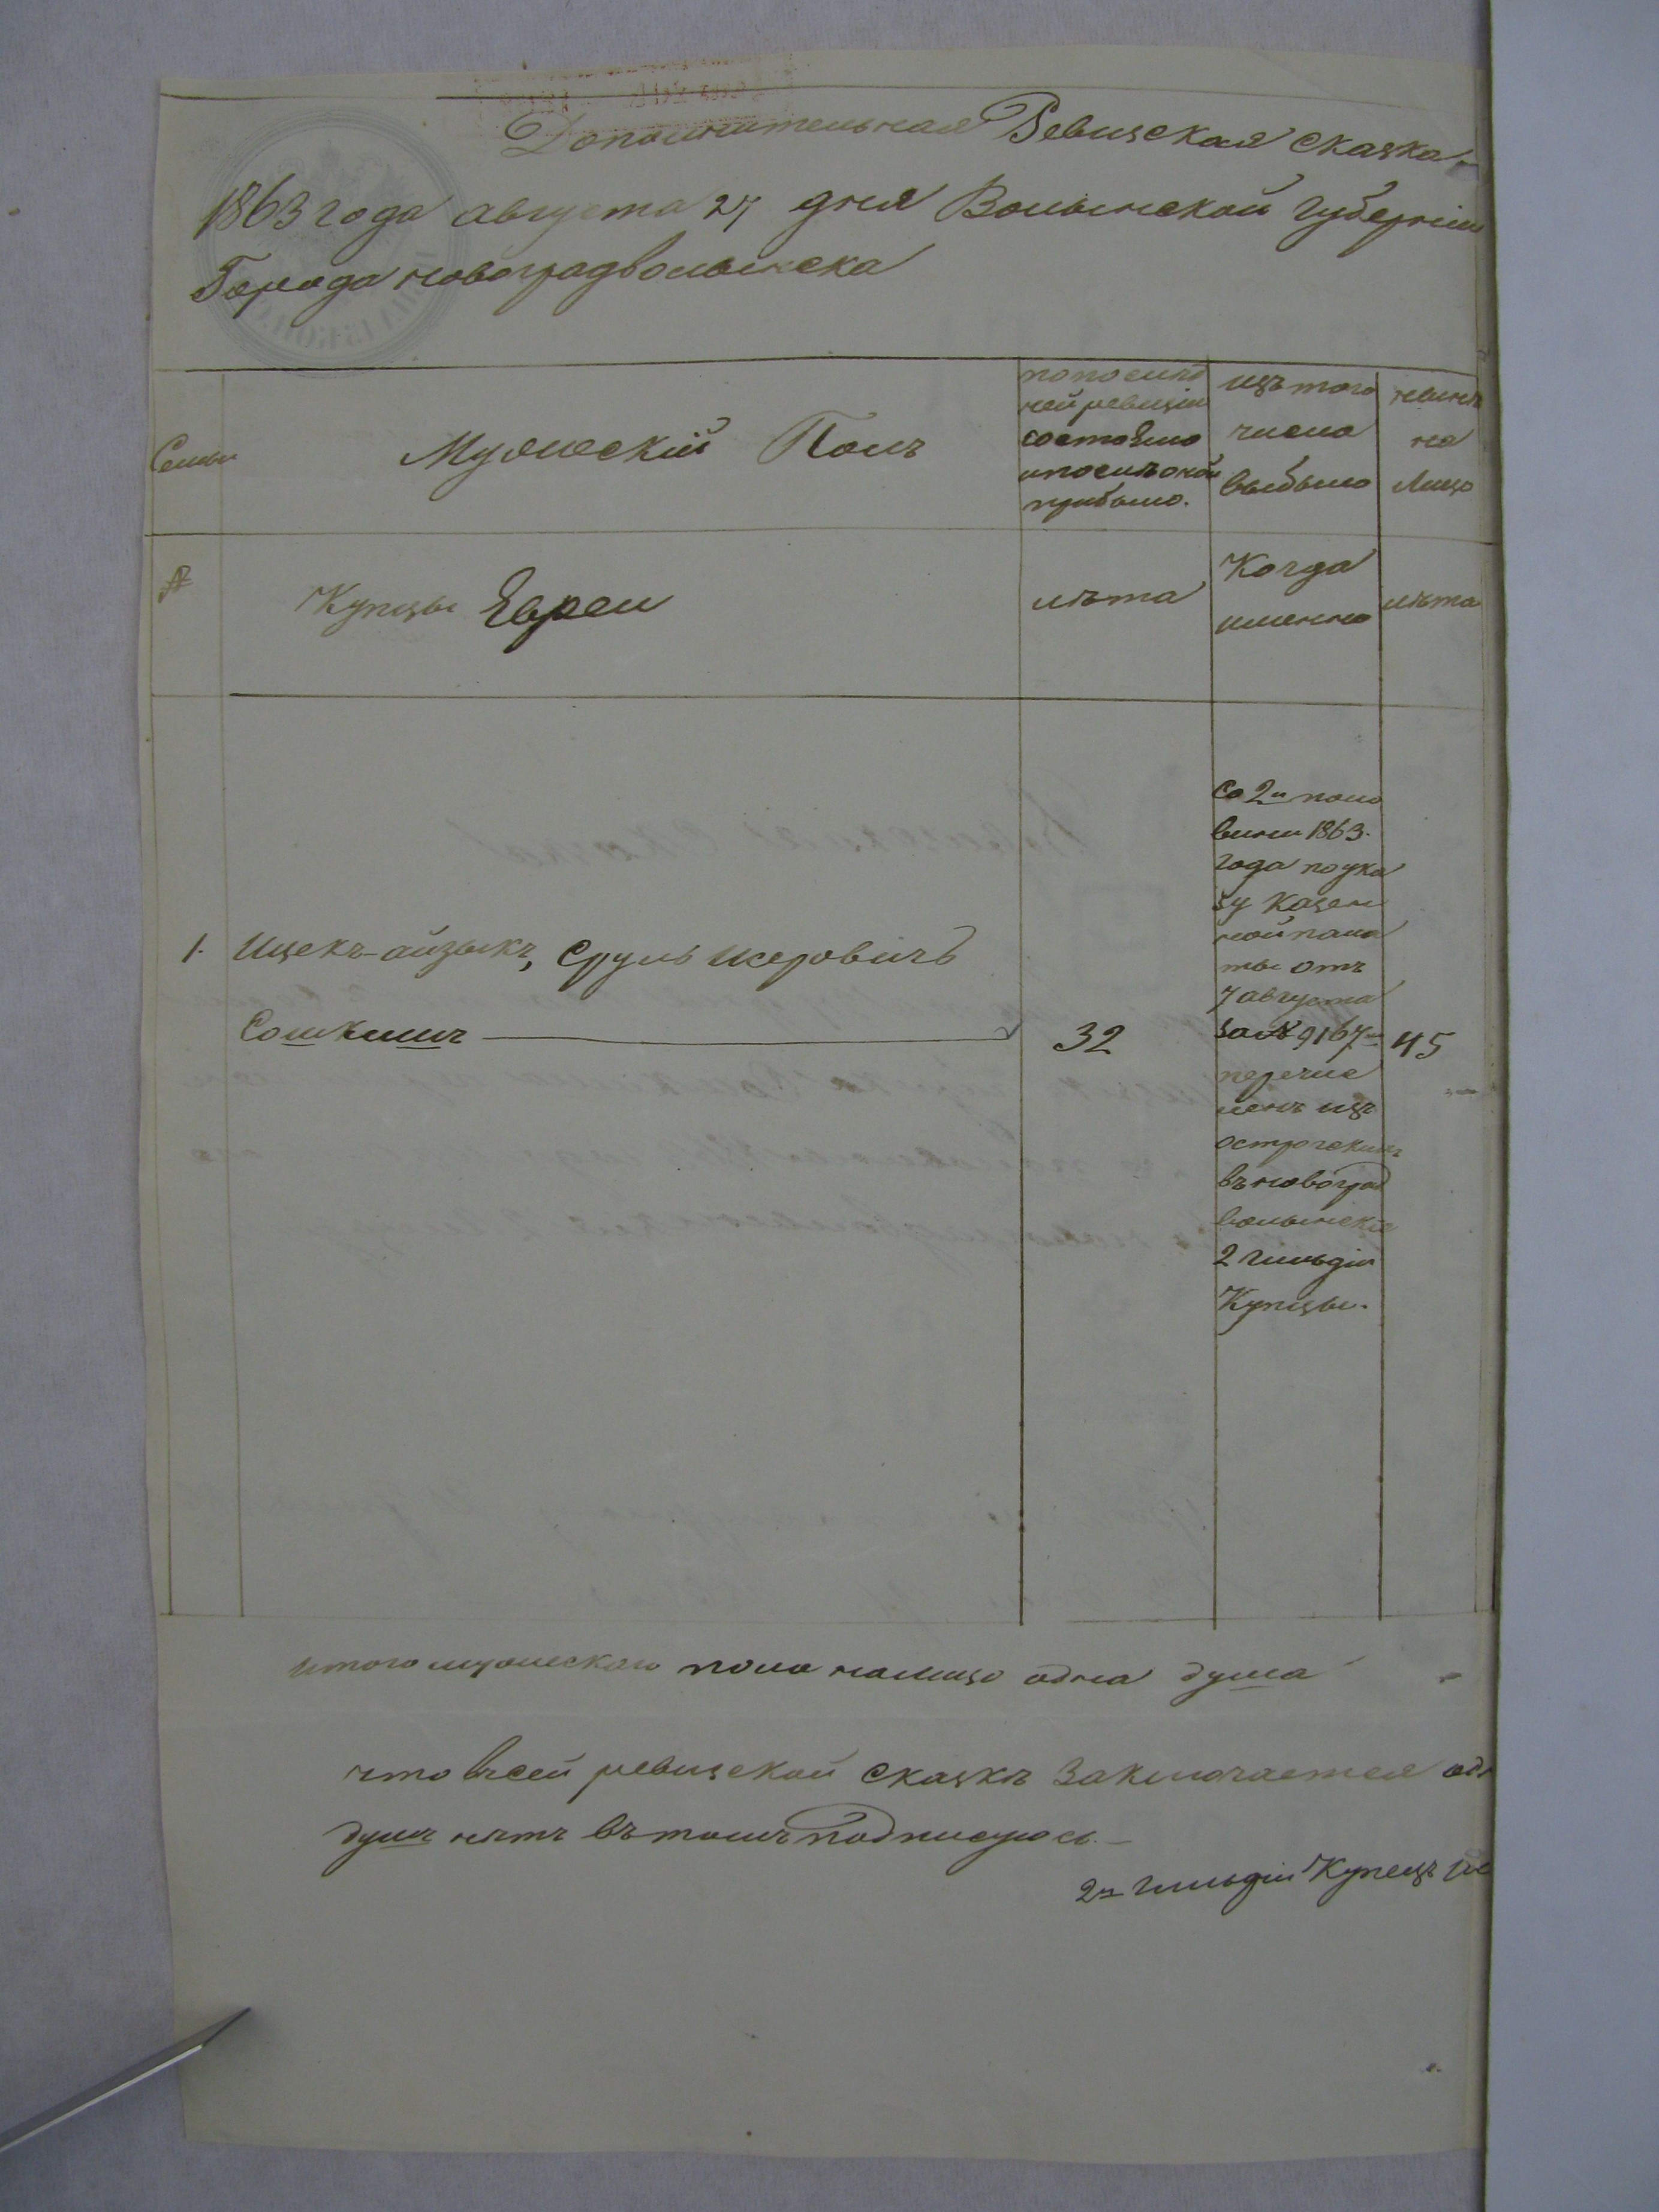 Дополнительная Ревизская сказка
1863 года августа 27 дня Волынской губерніи
Города новоградволынска
Семьи
Мужескій Полъ
по послѣд
ней ревизіи
состояло
и послѣ оной
прибыло.
изъ того
числа
выбыло
нынѣ
на
Лицо
№
Купцы Евреи
лѣта
Когда
именно
лѣта
1. Ицекъ-айзыкъ, Сруль
Сошкинъ
32
Со 2й поло
вины 1863.
года по ука
зу Казен
ной пала
ты отъ
7 августа
за № 9167
перечис
ленъ изъ
острогскихъ
въ новоград
волынскіе
2 гильдіи
Купцы.
45
итого мужескаго пола налицо одна душа
что в сей ревизской сказкѣ заключается
душъ нѣтъ въ томъ подписуюсь.
2й гильдіи Купецъ